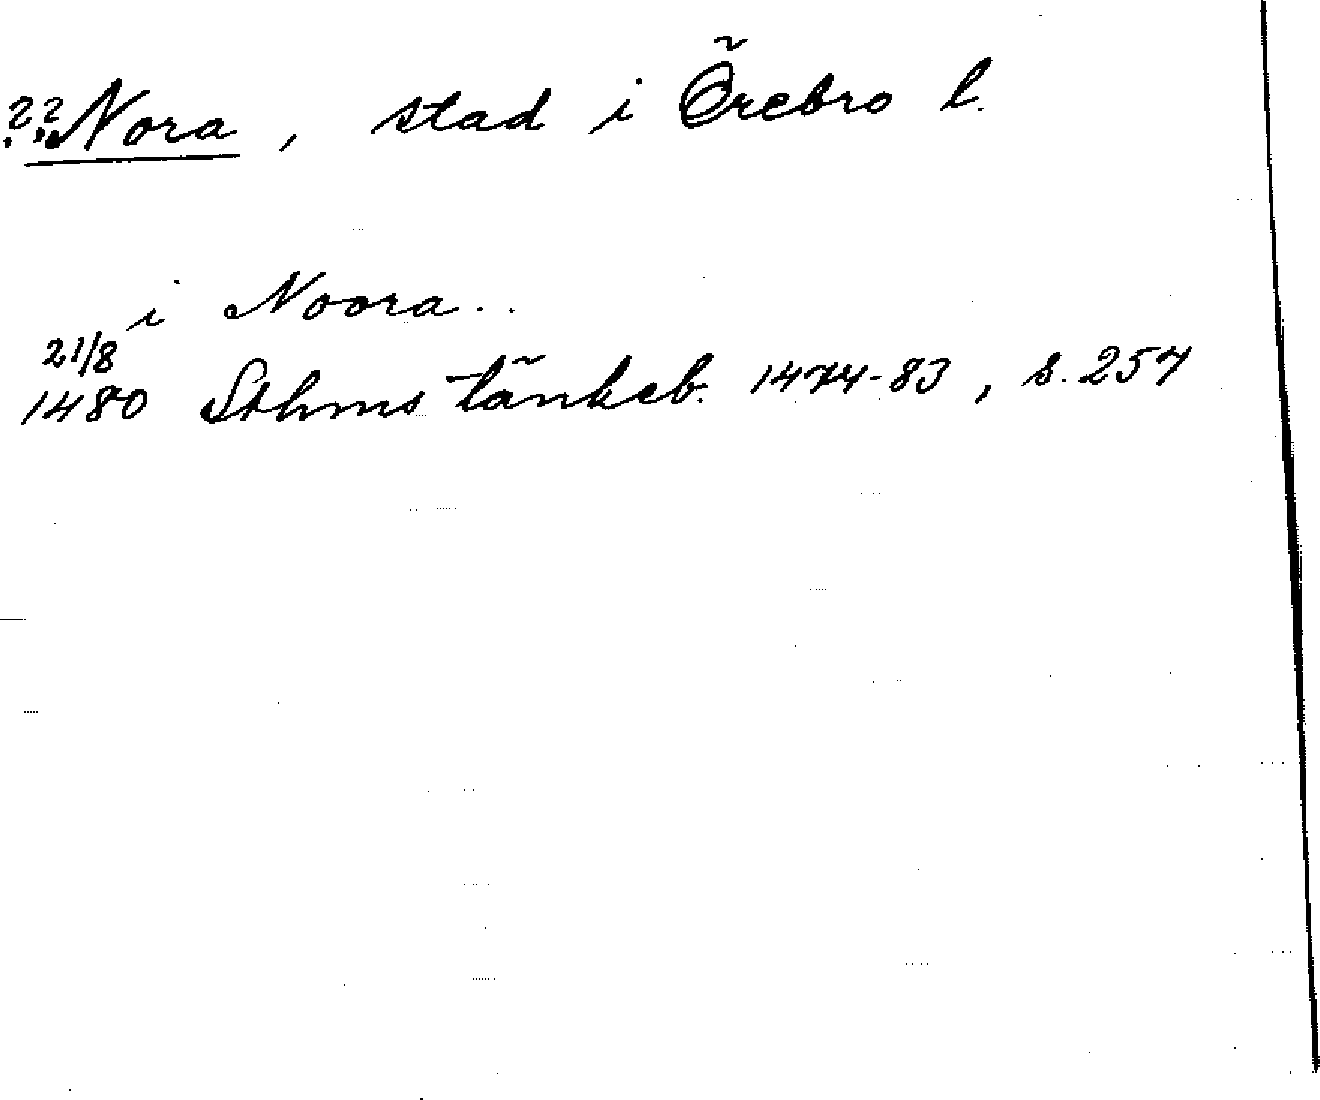 ??Nora, stad i Örebro l.
i Noora..
21/8
1480 Sthms tänkeb. 1474-83, s. 257